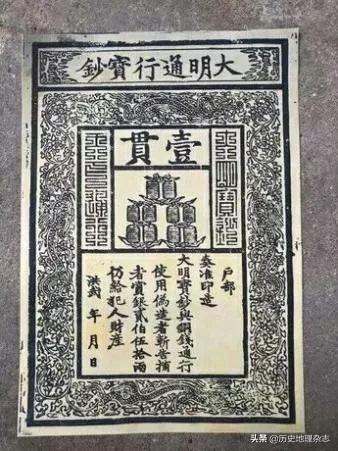 大明通行寶鈔
壹貫
大明寶鈔
天下通行
戶部
奏准印造
大明寶鈔與銅錢通行
使用偽造者斬告捕
者賞銀貳伯伍拾兩
仍給犯人財產
洪武 年 月 日
头条 @历史地理杂志